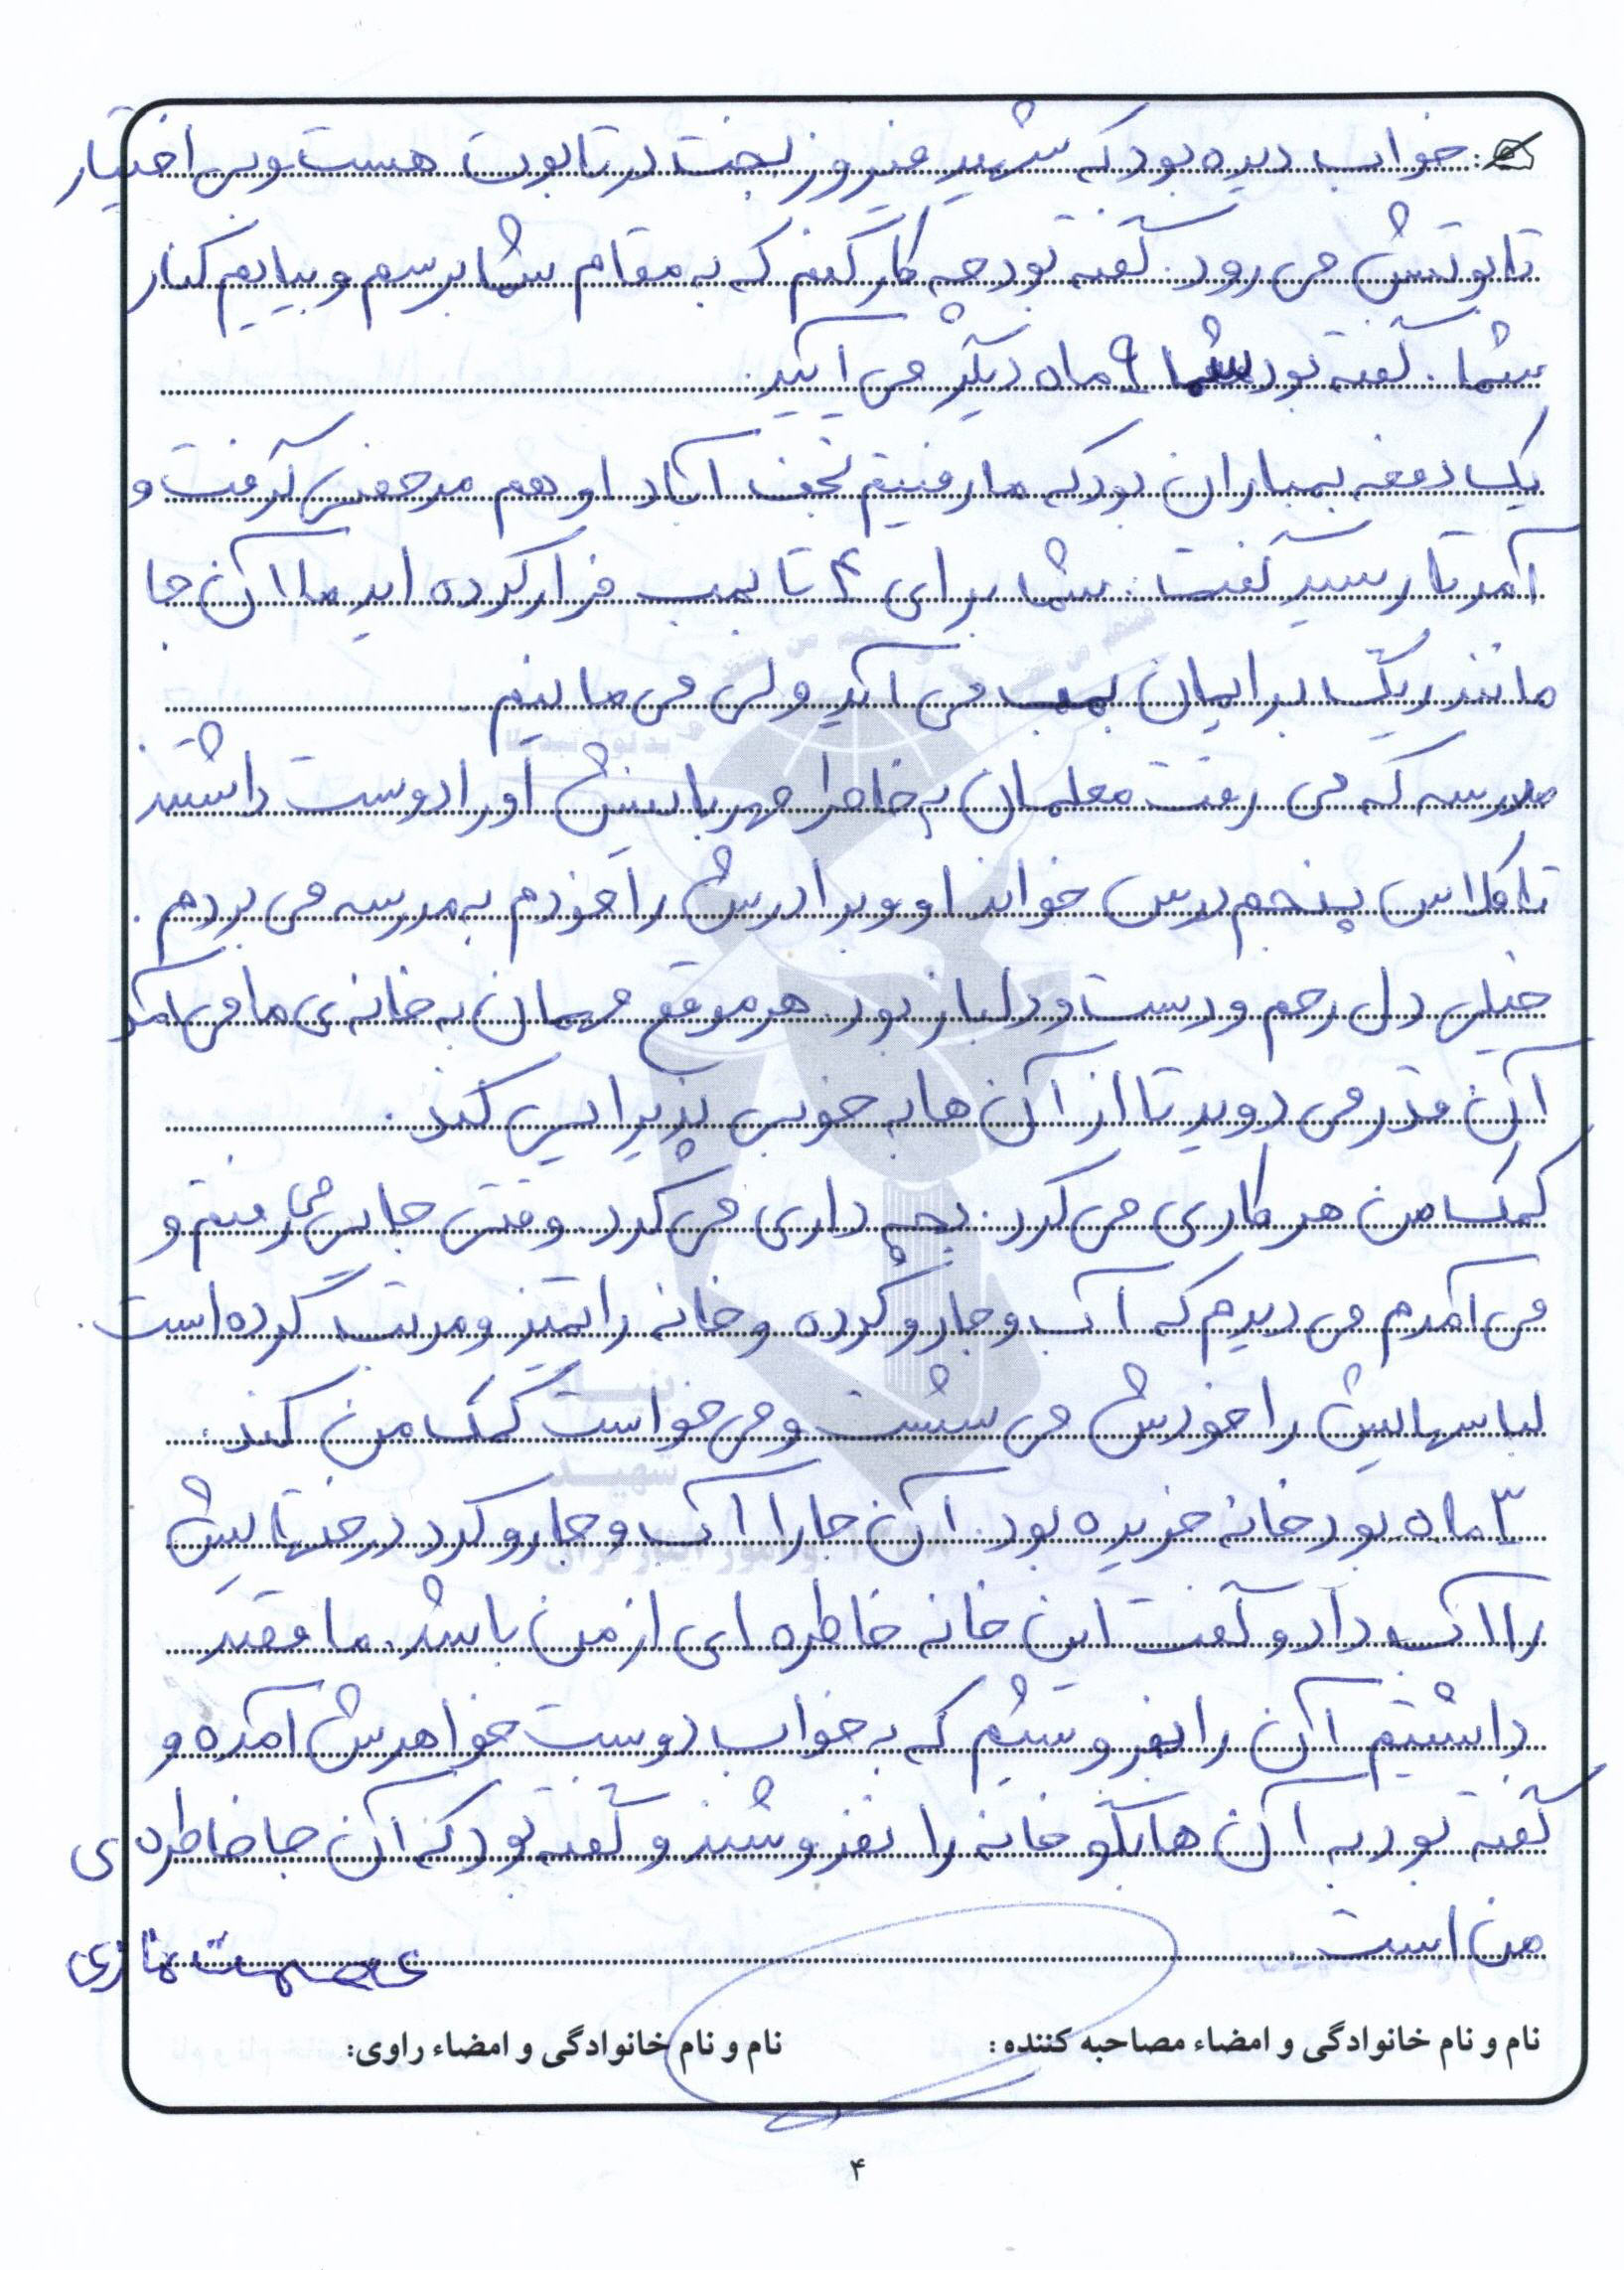 خواب دیده بود که شهید فیروز بخت در تابوت هست و بی اختیار
تابوتش می رود. گفته بود چه کار کنم که به مقام شما برسم و بیایم کنار
شما. گفته بود شما ۹ ماه دیگر می آیید.
یک دفعه بمباران بود که ما رفتیم نجف آباد او هم مرخصی گرفت و
آمد تا رسید گفت: شما برای ۴ تا بمب فرار کرده اید ما آن جا
مانند ریگ برایمان بمب می آید ولی می مانیم
مدرسه که می رفت معلمان به خاطر مهربانیش او را دوست داشتند
تا کلاس پنجم درس خواند او و برادرش را خودم به مدرسه می بردم.
خیلی دل رحم و دست و دلباز بود. هر موقع مهمان به خانه ی ما می آمد
آن قدر می دوید تا از آن ها به خوبی پذیرایی کند.
کمک من هر کاری می کرد. بچه داری می کرد. وقتی جایی می رفتم و
می آمدم می دیدم که آب و جارو کرده و خانه را تمیز و مرتب کرده است.
لباسهایش را خودش می شست و می خواست کمک من کند.
۳ ماه بود خانه خریده بود. آن جا را آب و جارو کرد درختهایش
را آب داد و گفت این خانه خاطره ای از من باشد. ما قصد
داشتیم آن را بفروشیم که به خواب دوست خواهرش آمده و
گفته بود به آن ها بگو خانه را نفروشند و گفته بود که آن جا خاطره ی
من است.
عصمت نمازی
نام و نام خانوادگی و امضاء مصاحبه کننده: نام و نام خانوادگی و امضاء راوی:
۴